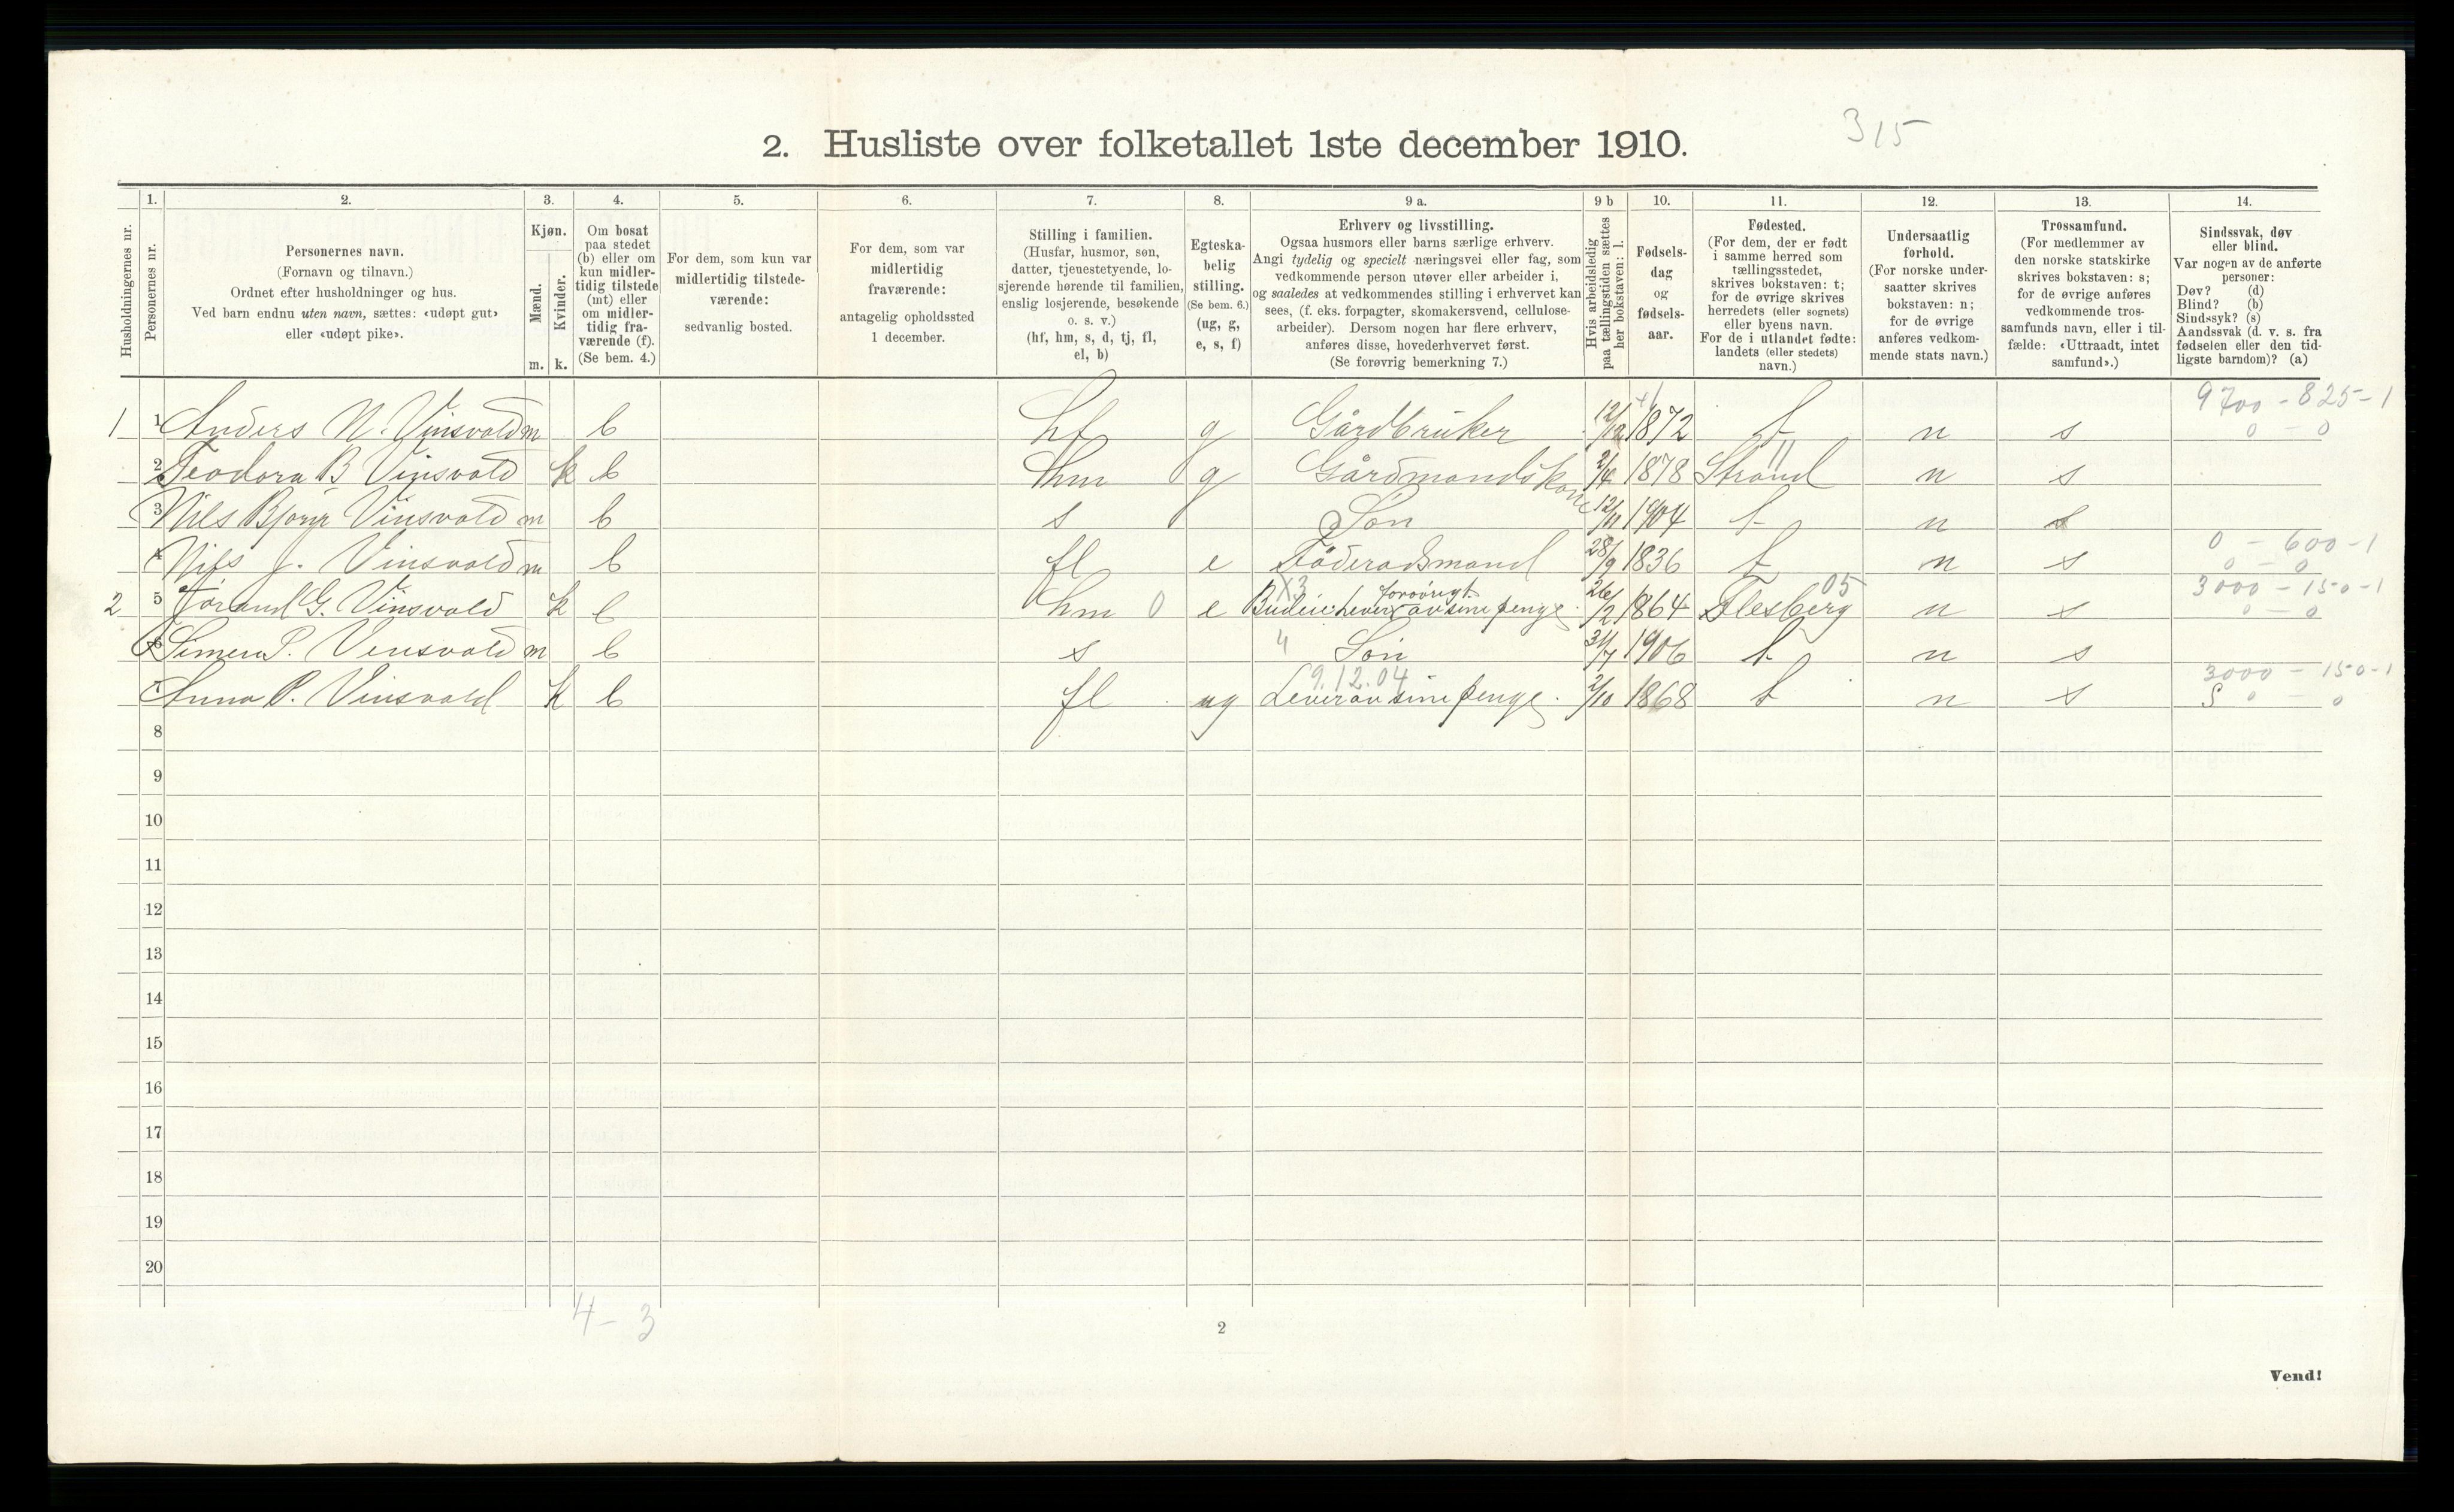 315
2. Husliste over folketallet 1ste december 1910.
Husholdningernes nr.
1. Personernes nr.
2. Personernes navn.
(Fornavn og tilnavn.)
Ordnet efter husholdninger og hus.
Ved barn endnu uten navn, sættes: «udøpt gut»
eller «udøpt pike».
3. Kjøn.
Mænd. m.
Kvinder. k.
4. Om bosat
paa stedet
(b) eller om
kun midler-
tidig tilstede
(mt) eller
om midler-
tidig fra-
værende (f).
(Se bem. 4.)
5. For dem, som kun var
midlertidig tilstede-
værende:
sedvanlig bosted.
6. For dem, som var
midlertidig
fraværende:
antagelig opholdssted
1 december.
7. Stilling i familien.
(Husfar, husmor, søn,
datter, tjenestetyende, lo-
sjerende hørende til familien,
enslig losjerende, besøkende
o. s. v.)
(hf, hm, s, d, tj, fl,
el, b)
8. Egteska-
belig
stilling.
(Se bem. 6.)
(ug, g,
e, s, f)
9 a. Erhverv og livsstilling.
Ogsaa husmors eller barns særlige erhverv.
Angi tydelig og specielt næringsvei eller fag, som
vedkommende person utøver eller arbeider i,
og saaledes at vedkommendes stilling i erhvervet kan
sees, (f. eks. forpagter, skomakersvend, cellulose-
arbeider). Dersom nogen har flere erhverv,
anføres disse, hovederhvervet først.
(Se forøvrig bemerkning 7.)
9 b Hvis arbeidsledig
paa tællingstiden sættes
her bokstaven: l.
10. Fødsels-
dag
og
fødsels-
aar.
11. Fødested.
(For dem, der er født
i samme herred som
tællingsstedet,
skrives bokstaven: t;
for de øvrige skrives
herredets (eller sognets)
eller byens navn.
For de i utlandet fødte:
landets (eller stedets)
navn.)
12. Undersaatlig
forhold.
(For norske under-
saatter skrives
bokstaven: n;
for de øvrige
anføres vedkom-
mende stats navn.)
13. Trossamfund.
(For medlemmer av
den norske statskirke
skrives bokstaven: s;
for de øvrige anføres
vedkommende tros-
samfunds navn, eller i til-
fælde: «Uttraadt, intet
samfund».)
14. Sindssvak, døv
eller blind.
Var nogen av de anførte
personer:
Døv? (d)
Blind? (b)
Sindssyk? (s)
Aandssvak (d. v. s. fra
fødselen eller den tid-
ligste barndom)? (a)
9700 - 825 - 1
1 1 Anders N. Vinsvold m b hf g Gårdbruker 12/12 1872 t n s 0 - 0
2 Teodora B Vinsvold k b hm g Gårdmandskone 2/4 1878 Strand n s
3 Nils Bjorn Vinsvold m b s Søn 12/11 1904 t n s
0 - 600 - 1
4 Nils J. Vinsvold m b fl e Föderadsmand 28/9 1836 t n s 0 - 0
x3 forøvrigt 05 3000 - 150 - 1
2 5 Jorand G. Vinsvold k b hm 0 e Budeie lever av sine penge. 26/2 1864 Flesberg n s 0 - 0
6 Simen P. Vinsvold m b s 4 Søn 31/7 1906 t n s
9.12.04 3000 - 150 - 1
7 Anna P. Vinsvold k b fl ug Lever av sine penge. 2/10 1868 t n s S 0 - 0
8
9
10
11
12
13
14
15
16
17
18
19
20
4 - 3
2
Vend!